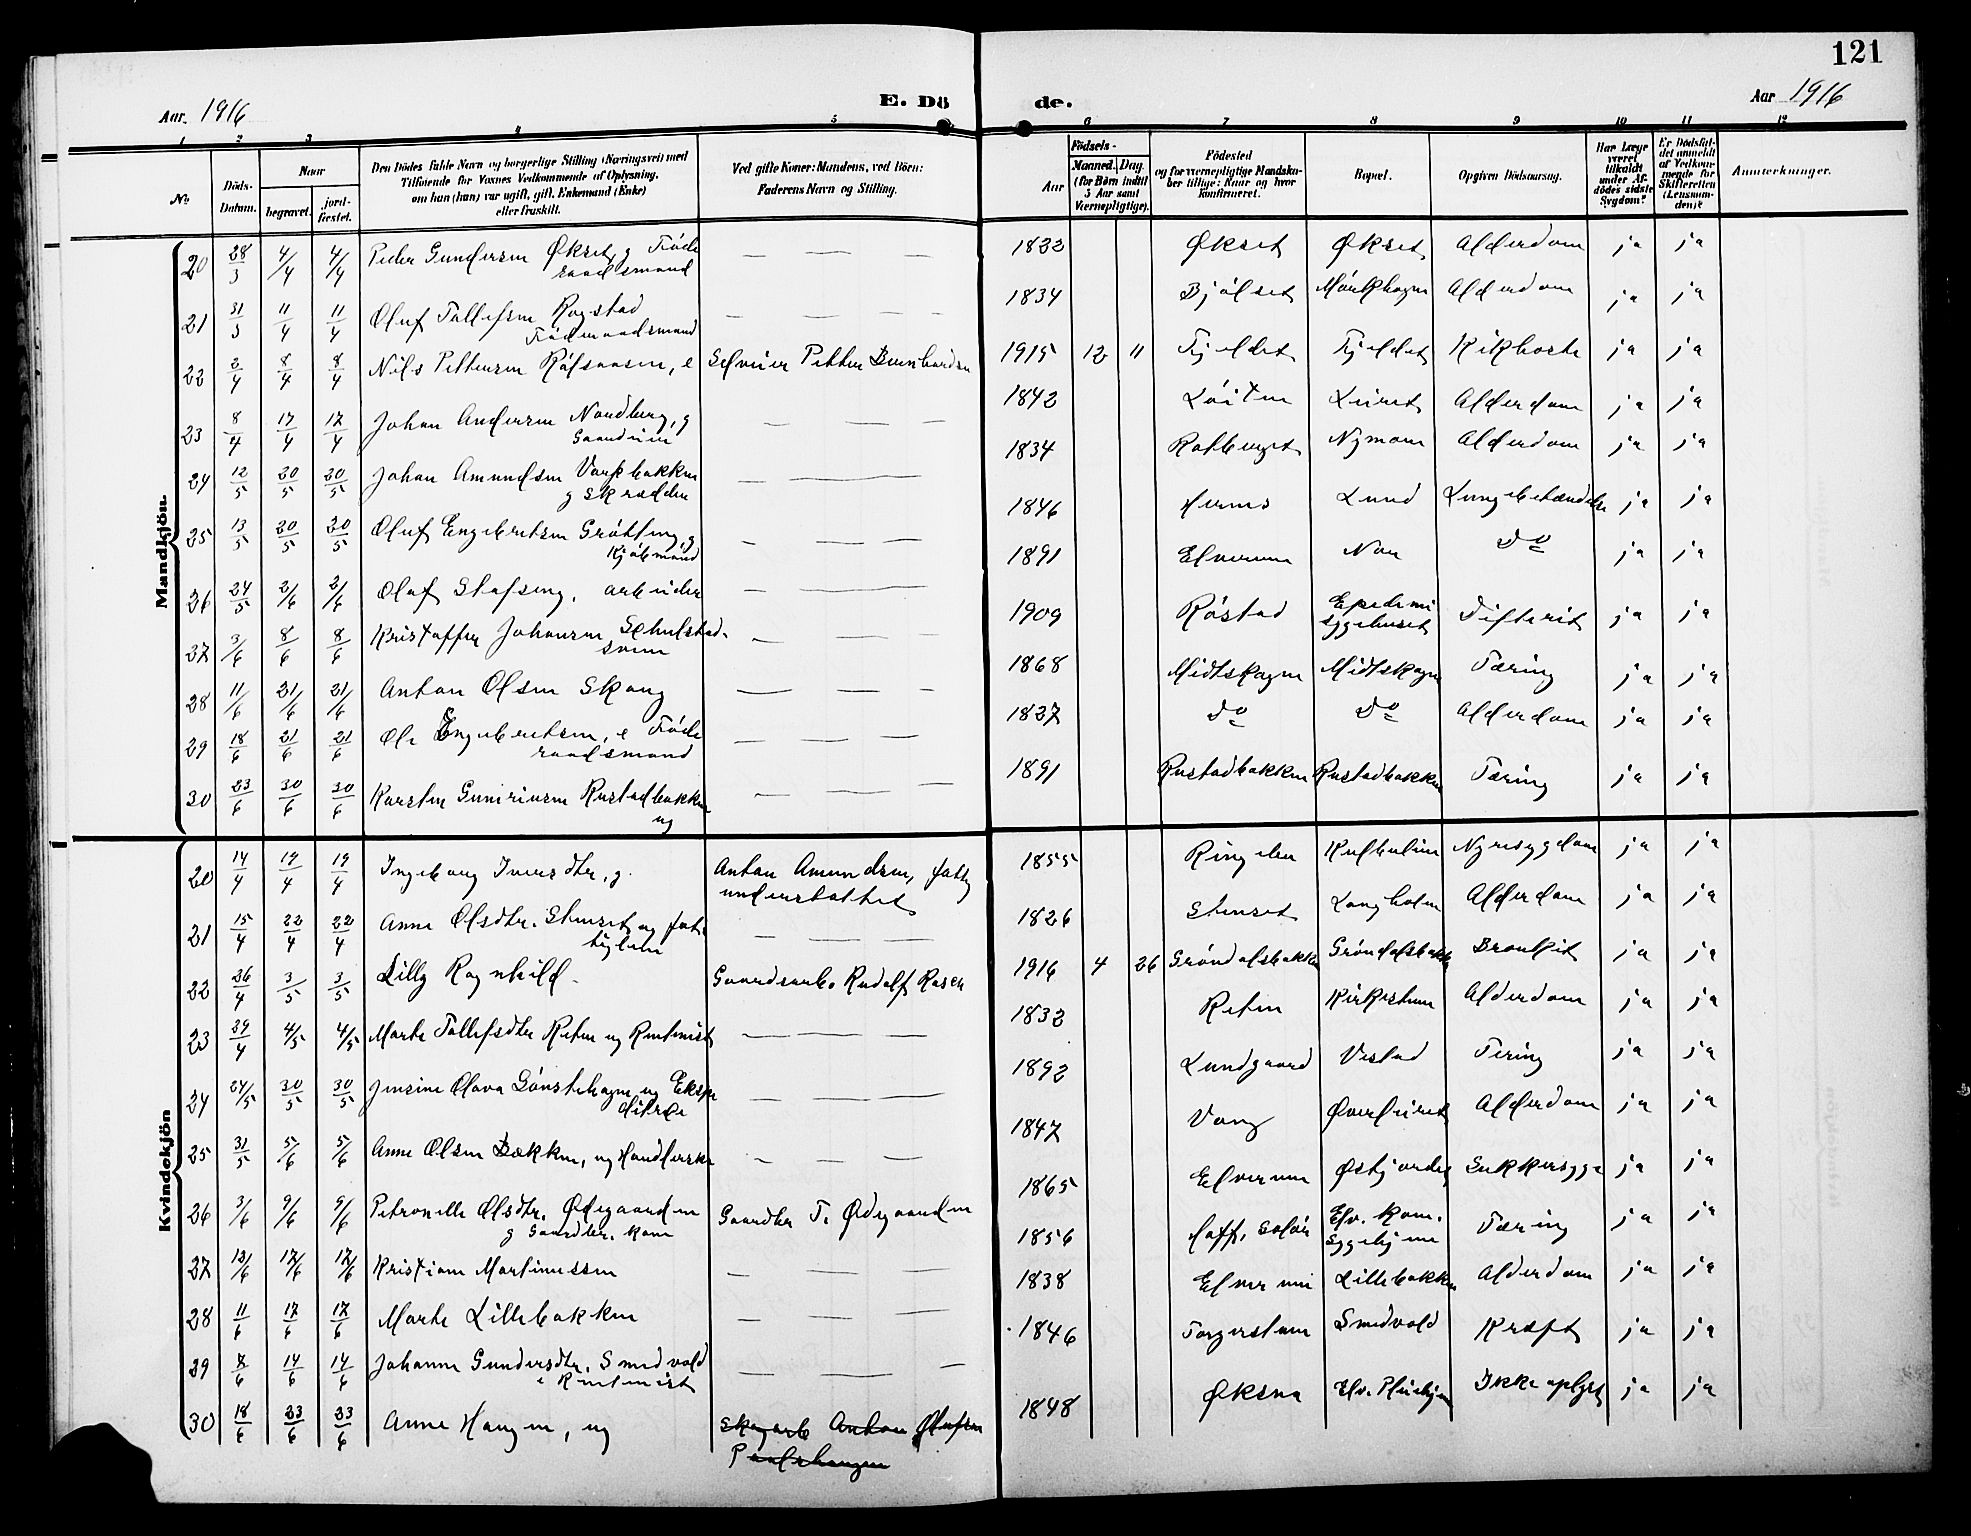 121
Aar. 1916
E. Dö
de.
Aar 1916
1 2 3 4 5 6 7 8 9 10 11 12
No
Döds-Datum.
Naar
begravet.
jordfæstet.
Den Dödes fulde Navn og borgerlige Stilling (Næringsvei) med
Tilføiende for Voxnes Vedkommende af Oplysning,
om han (hun) var ugift, gift, Enkemand (Enke)
eller fraskilt.
Ved gifte Koner: Mandens, ved Börn:
Faderens Navn og Stilling.
Födsels-
Aar
Maaned. Dag.
(for Börn indtil
5 Aar samt
Værnepligtige).
Födested
og for værnepligtige Mandskaber tillige: Naar og hvor
konfirmeret.
Bopæl.
Opgiven Dödsaarsag.
Har Læge været tilkaldt under Afdödes sidste Sygdom?
Er Dödsfaldet anmeldt af Vedkommende for Skifteretten (Lensmanden)?
Anmerkninger.
Mandkjön.
20 28/3 4/4 4/4 Peder Gundersen Økset, g Föderaadsmand — — — 1832 Økset Økset Alderdom ja ja
21 31/3 11/4 11/4 Oluf Tollefsen Rogstad Föderaadsmand — — — — 1834 Bjölset Mörkhagen Alderdom ja ja
22 2/4 8/4 8/4 Nils Pettersen Röfsaasen, e Selveier Petter Bernhardsen 1915 12 11 Fjeldet Fjeldet Kikhoste ja ja
23 8/4 17/4 17/4 Johan Andersen Nordberg, g Gaardeier — — — 1842 Löiten Leiret Alderdom ja ja
24 12/5 20/5 20/5 Johan Amundsen g Skrædder — — — 1834 Nymoen Alderdom ja ja
25 13/5 20/5 20/5 Oluf Engebretsen Grötting, g Kjöbmand — — — 1846 Hernes Lund Lungebetændelse ja ja
26 24/5 2/6 2/6 Olaf, arbeider — — — 1891 Elverum Nor Do ja ja
27 3/6 8/6 8/6 Kristoffer Johansen — — — 1909 Röstad Epedemisygehuset Difterit ja ja
28 11/6 21/6 21/6 Anton Olsen Skaug — — — 1868 Midtskogen Midtskogen Tæring ja ja
29 18/6 21/6 21/6 Ole Engebretsen, e Föderaadsmand — — — 1827 Do Do Alderdom ja ja
30 23/6 30/6 30/6 Karsten Rustadbakken ug — — — 1891 Rustadbakken Rustadbakken Tæring ja ja
Kvindekjön
20 14/4 19/4 19/4 Ingeborg Iversdtr, g. Anton Amundsen, fattigunderstöttet 1855 Nyresygdom ja ja
21 15/4 22/4 22/4 Anne Olsdtr. Stenset, ug fattiglem — — — 1826 Stenset Langholen Alderdom ja ja
22 26/4 3/5 3/5 Lilly Ragnhild. Gaardsarb. Rudolf 1916 4 26 Gröndalsbakken Gröndalsbakken Bronkit ja ja
23 29/4 4/5 4/5 Marte Tollefsdtr Reten ug Rentenist — — — 1832 Reten Alderdom ja ja
24 24/5 30/5 30/5 Jensine Olava ug Ekspeditrice — — — 1892 Lundgaard Vestad Tæring ja ja
25 31/5 5/6 5/6 Anne Olsen Bækken, ug Handlerske — — — 1847 Vang Alderdom ja ja
26 3/6 9/6 9/6 Petronelle Olsdtr. Ødegaarden g Gaardbr. kone Gaardbr T. Ødegaarden 1865 Elverum Østjordet Sukkersyge ja ja
27 12/6 17/6 17/6 Kristiane Martinussen — — — 1856 Hoff, Solör Elv. Kom. Sygehjem Tæring ja ja
28 11/6 17/6 17/6 Marte Lillebakken — — — 1838 Elverum Lillebakken Alderdom ja ja
29 8/6 14/6 14/6 Johanne Gundersdtr. Smedvold e Rentenist — — — 1846 Torgerstuen Smedvold Kræft ja ja
30 18/6 23/6 23/6 Anne Haugen, ug Skogarb Anton Olufsen 1848 Øksna Elv. Pleiehjem Ikke oplyst ja ja